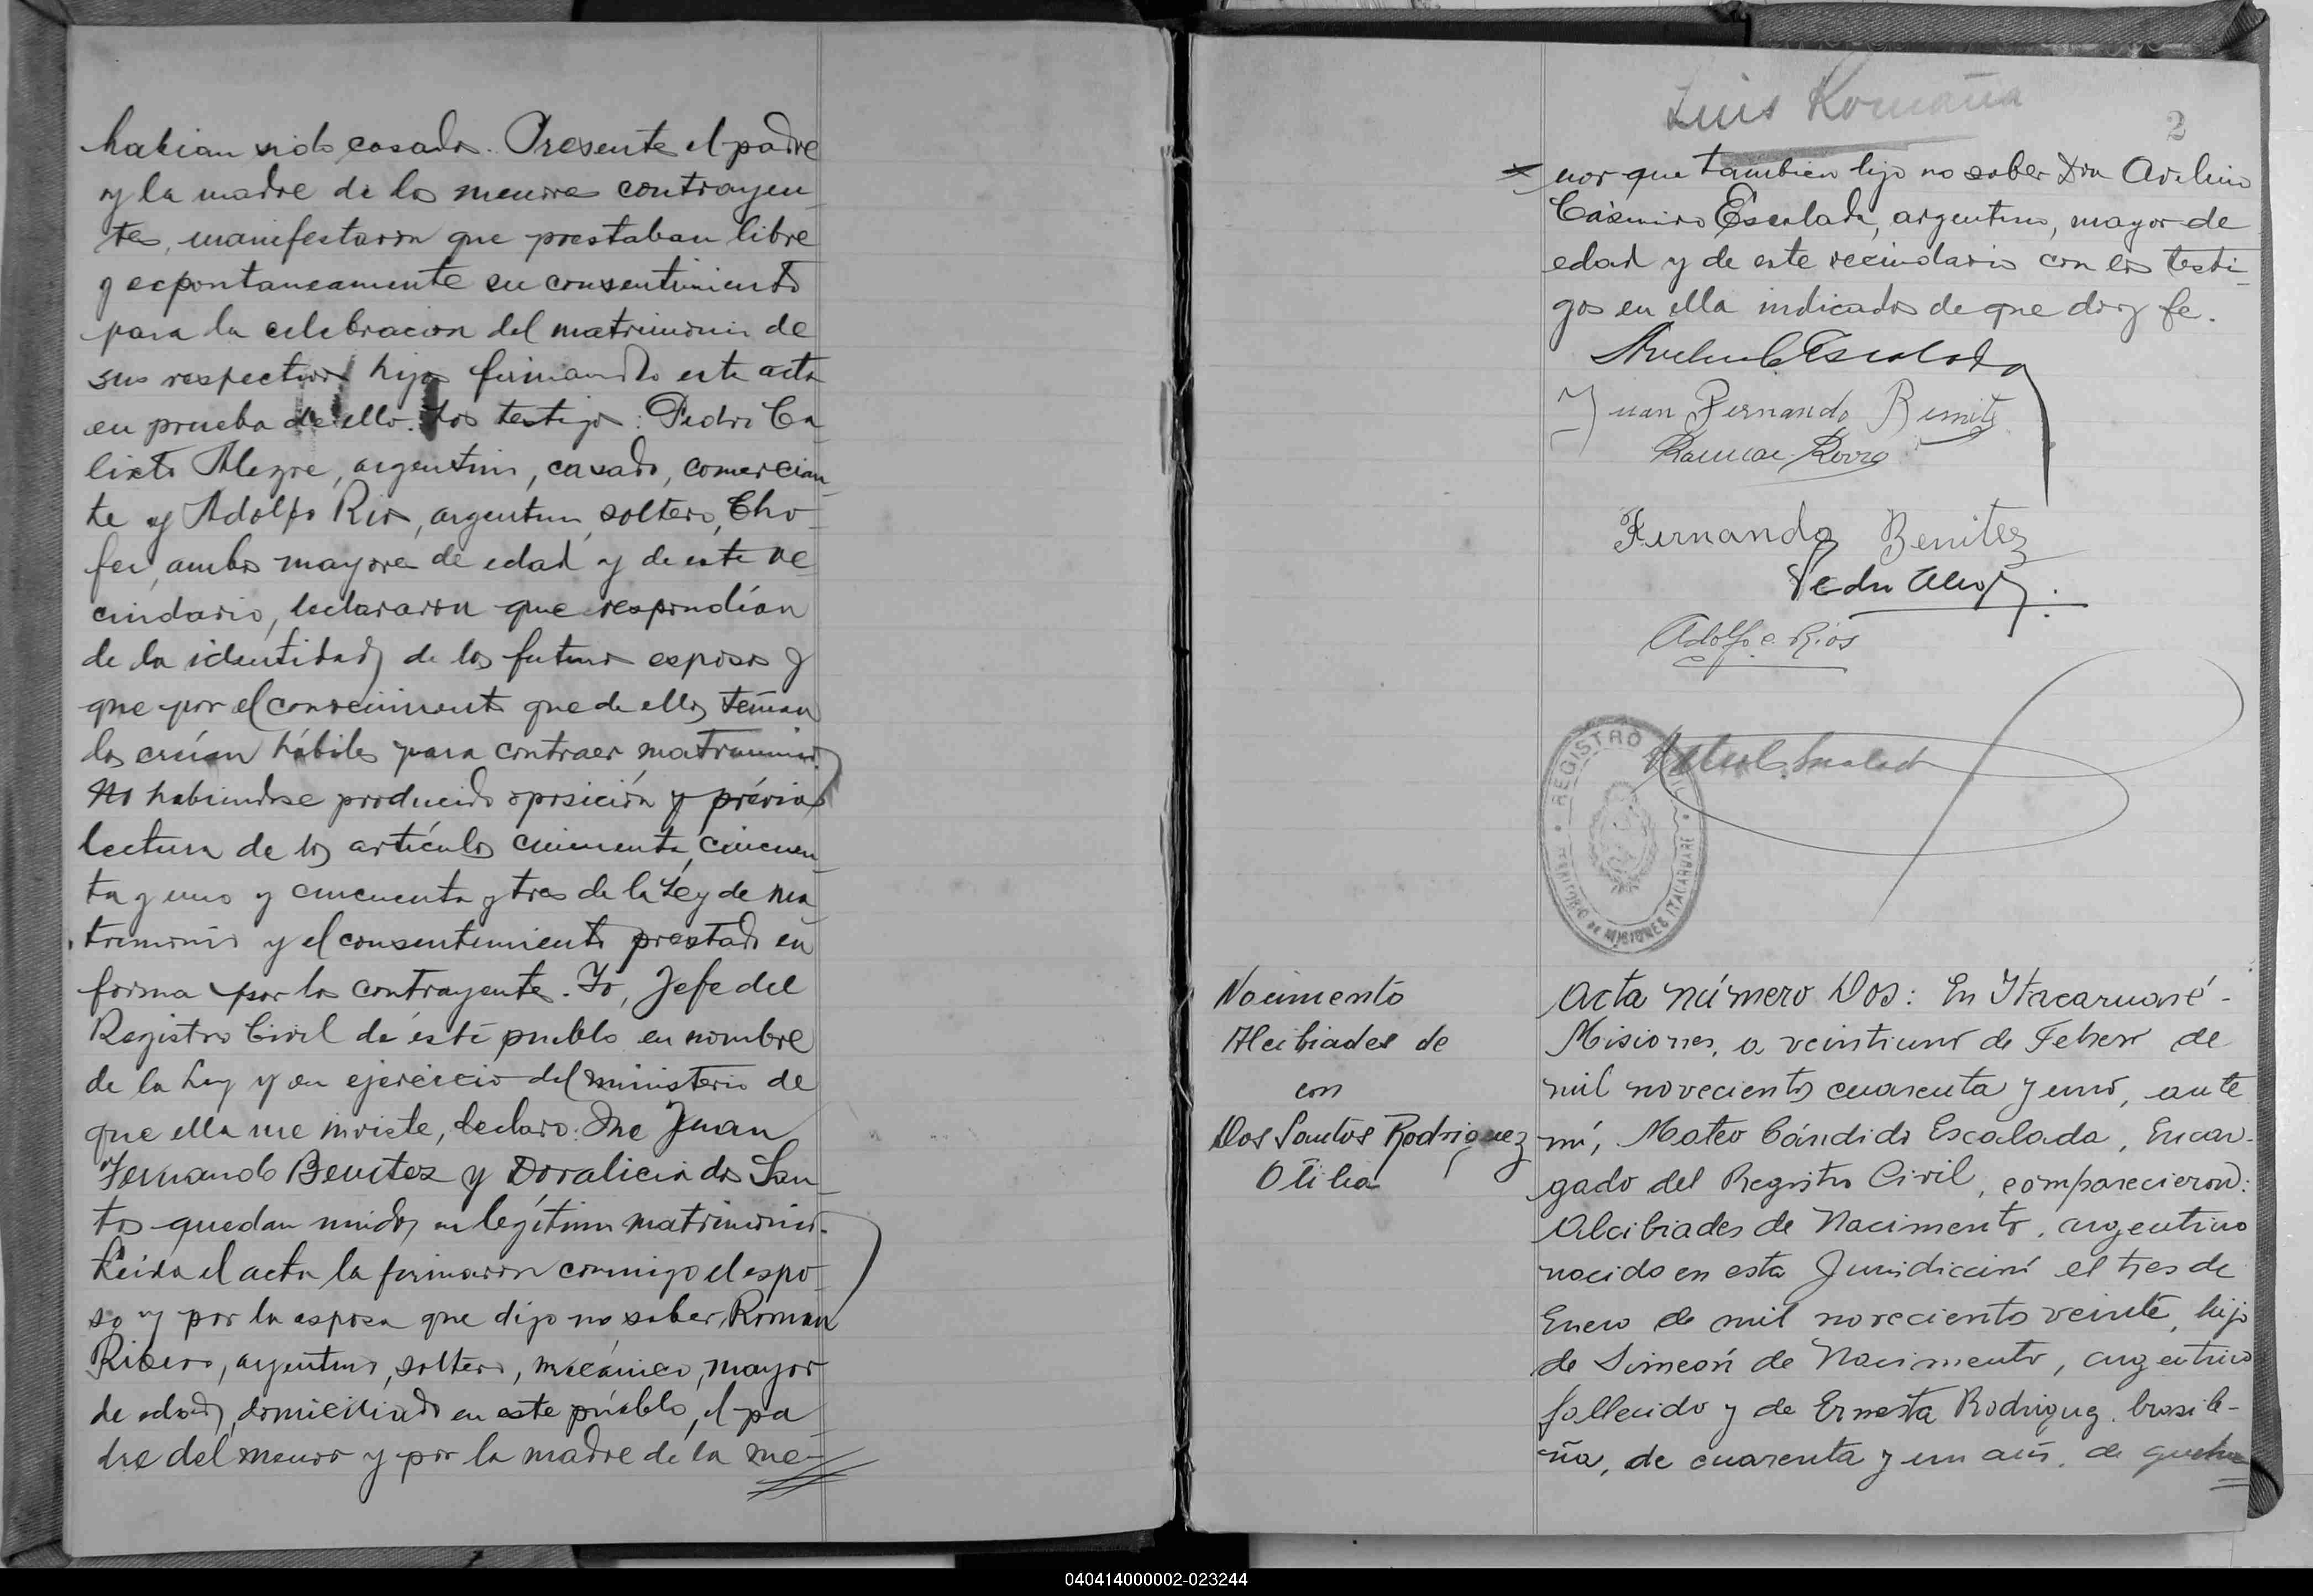 habian sido casados. Presente el padre
y la madre de los menores contrayen
tes, manifestaron que prestaban libre
y espontaneamente su consentimiento
para la celebracion del matrimonio de
sus respectivos hijos firmando esta acta
en prueba de ello. Los testigos: Pedro Ca
lixto Alegre, argentino, casado, comercian
te y Adolfo Rios, argentino, soltero, Cho
fer, ambos mayores de edad y de este ve
cindario, declararon que respondían
de la identidad de los futuros esposos y
que por el conocimiento que de ellos tenían
los creían hábiles para contraer matrimonio.
No habiendose producido oposición y prévia
lectura de los artículos cincuenta, cincuen
ta y uno y cincuenta y tres de la Ley de ma
trimonio y el consentimiento prestado en
forma por los contrayentes. Yo, Jefe del
Registro Civil de éste pueblo en nombre
de la Ley y en ejercicio del ministerio de
que ella me inviste, declaro: Que Juan
Fernando Benitez y Doralicia dos San
tos quedan unidos en legítimo matrimonio.
Leida el acta la firmaron conmigo el espo
so y por la esposa que dijo no saber, Roman
Ribero, argentino, soltero, mecánico, mayor
de edad, domiciliado en este pueblo, el pa
dre del menor y por la madre de la me-
Luis Romaña
2
nor que tambien dijo no saber Don Avelino
Casimiro Escalada, argentino, mayor de
edad y de este vecindario con los testi
gos en ella indicados de que doy fe.
Avelino C Escalada
Juan Fernando Benitez
Fernando Benitez
Pedro
Adolfo Rios
REGISTRO CIVIL
TERRITORIO DE MISIONES ITACARUARE
Nacimento
Alcibiades de
con
Dos Santos Rodriguez
Otilia
Acta número Dos: En Itacaruaré-
Misiones, a veintiuno de Febrero de
mil novecientos cuarenta y uno, ante
mí, Mateo Cándido Escalada, Encar-
gado del Registro Civil, comparecieron:
Alcibiades de Nacimento, argentino
nacido en esta Juridiccion el tres de
Enero de mil novecientos veinte, hijo
de Simeón de Nacimento, argentino
fallecido y de Ernesta Rodriguez, brasile-
ña, de cuarenta y un años, de
040414000002-023244